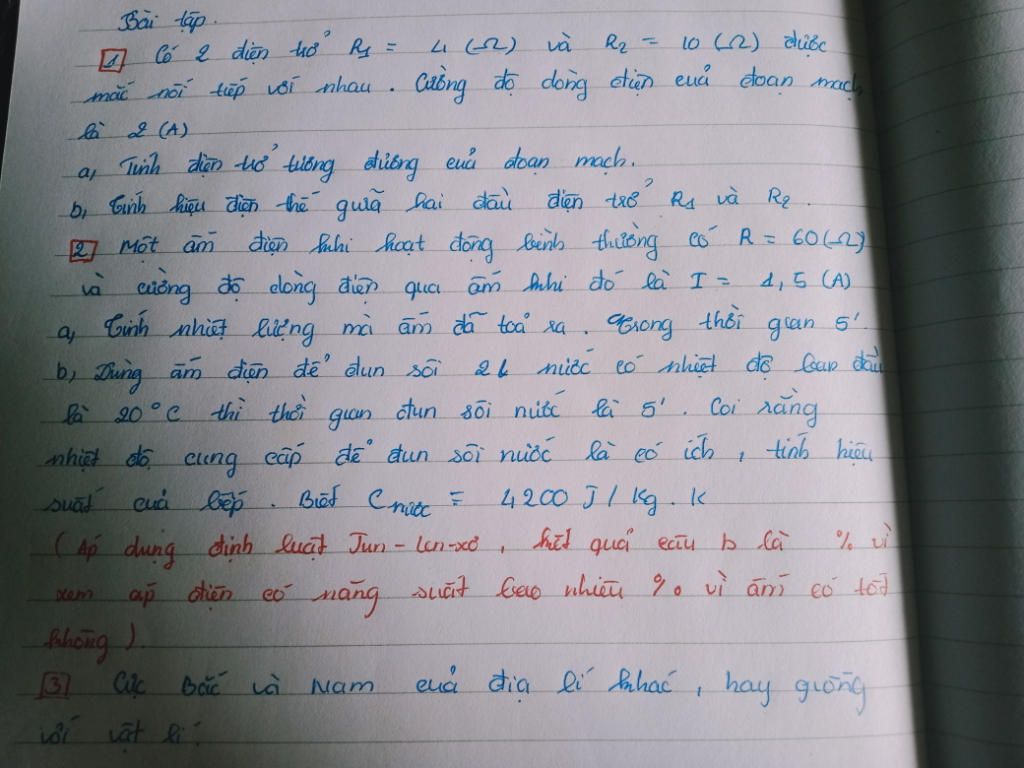 Bài tập.
1 Có 2 điện trở R1 = 4 (Ω) và R2 = 10 (Ω) được
mắc nối tiếp với nhau. Cường độ dòng điện của đoạn mạch
là 2 (A)
a, Tính điện trở tương đương của đoạn mạch.
b, Tính hiệu điện thế giữa hai đầu điện trở R1 và R2.
2 Một ấm điện khi hoạt động bình thường có R = 60(Ω)
và cường độ dòng điện qua ấm khi đó là I = 1,5 (A)
a, Tính nhiệt lượng mà ấm đã toả ra. Trong thời gian 5'
b, Dùng ấm điện để đun sôi 2L nước có nhiệt độ ban đầu
là 20°C thì thời gian đun sôi nước là 5'. Coi rằng
nhiệt độ cung cấp để đun sôi nước là có ích, tính hiệu
suất của bếp. Biết Cnước = 4200 J/Kg.K
(Áp dụng định luật Jun-len-xơ, kết quả câu b là % vì
xem ấp điện có năng suất bao nhiêu % vì ấm có tốt
không).
3 Cực Bắc và Nam của địa lí khác, hay giống
với vật lí.